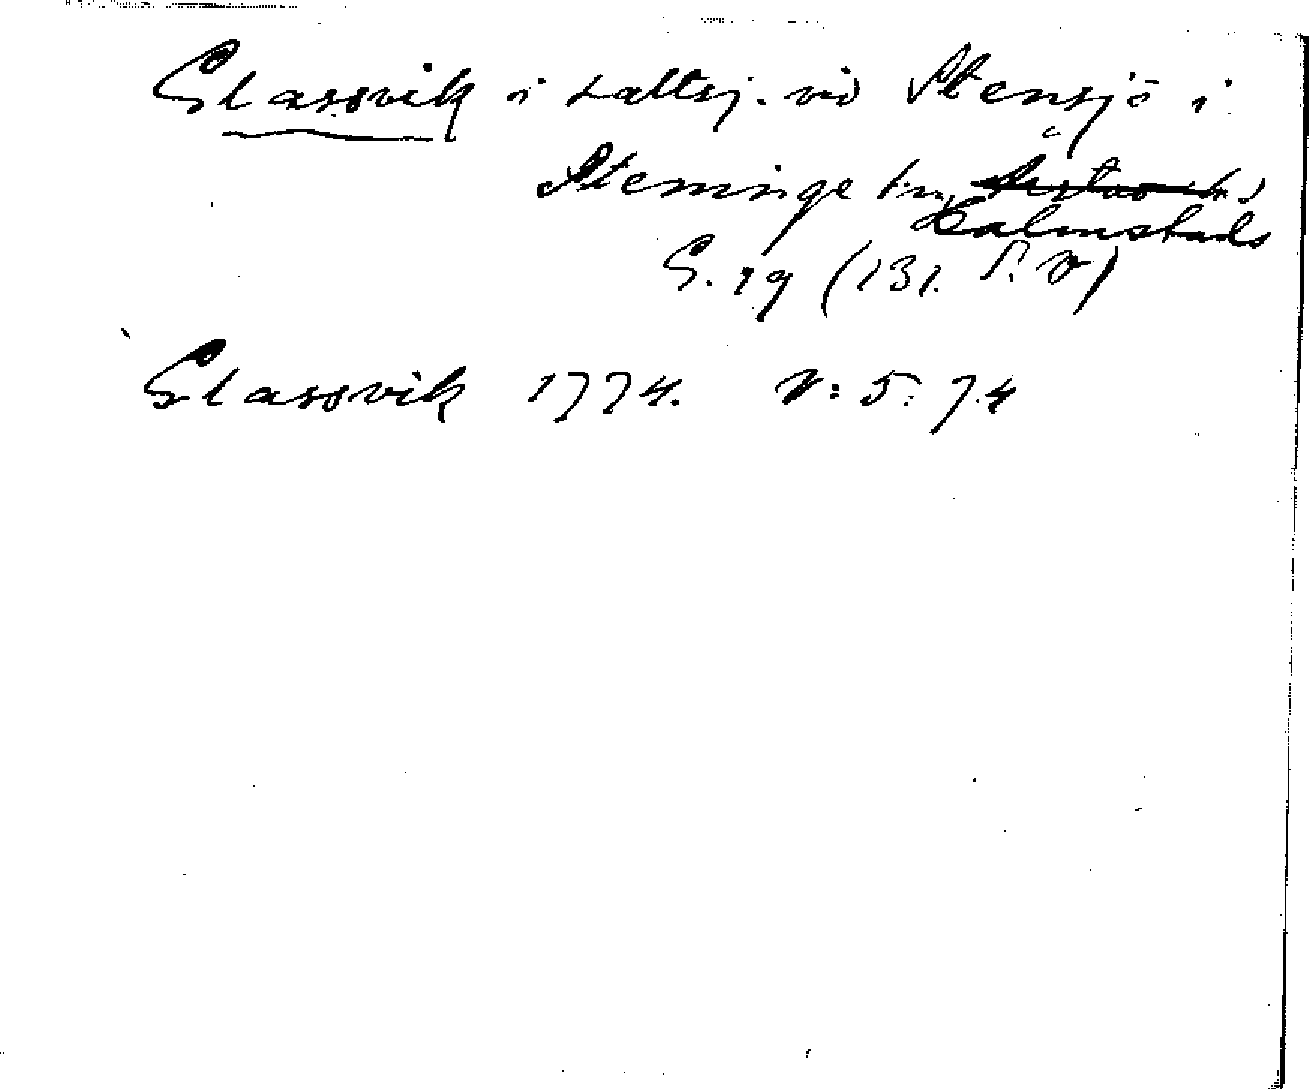 Glassvik i saltsj. vid Stensjö i
Steninge sn,
Halmstads
G. 19 (131. S. V)
Glassvik 1774. V: 5: 74